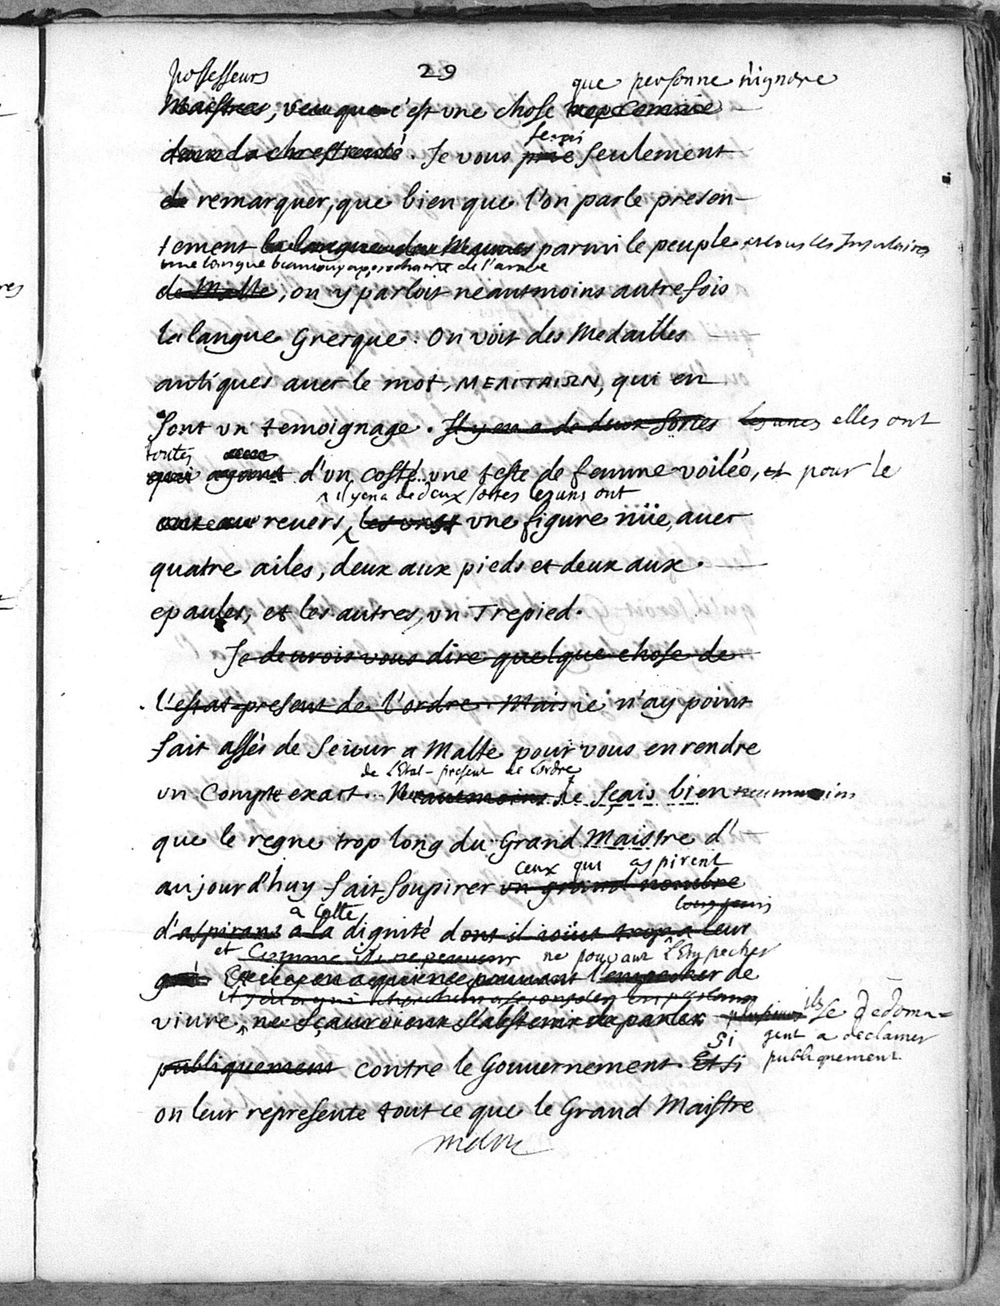 29
possesseurs que personne n'ignore
Maistres, veu que c'est une chose trop connue
dans la chrestienté. Je vous prie seulement
de remarquer, que bien que l'on parle presen-
tement la langue des Maures parmi le peuple et tous les Insulaires
une langue beaucoup approchante de l'arabe
de Malte, on y parloit neantmoins autrefois
la langue Grecque. On voit des Medailles
antiques avec le mot, MEΛITAIΩN, qui en
sont un temoignage. Il y en a de deux sortes les unes elles ont
toutes
qui ayant d'un costé une teste de femme voilée, et pour le
il y en a de deux sortes les uns ont
revers, les unes une figure nüe, avec
quatre ailes, deux aux pieds et deux aux
epaules, et les autres, un Trepied.
Je devrois vous dire quelque chose de
l'estat present de l'ordre Mais ie n'ay point
fait assés de seiour a Malte pour vous en rendre
de l'Etat present de l'ordre
un Compte exact. Neantmoins Je sçais bien neanmoins
que le regne trop long du Grand Maistre d'
ceux qui aspirent
aujourd'huy fait soupirer un grand nombre
à cette
d'aspirans à la dignité dont il iouit trop a leur
et comme ils ne peuvent ne pouvant l'Empecher
gré. Et ne pouvant l'empecher de
vivre, ne sçauroient s'abstenir de parler plusieurs ils se dedoma=
Si gent a declamer
publiquement
publiquement contre le Gouvernement. Et si
on leur represente tout ce que le Grand Maistre